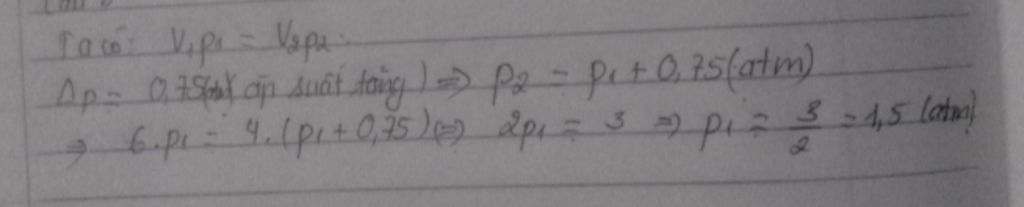 Ta có: V₁p₁ = V₂p₂.
Δp = 0,75(atm)( áp suất tăng) ⇒ p₂ = p₁ + 0,75(atm)
⇒ 6.p₁ = 4.(p₁+0,75) ⇔ 2p₁ = 3 ⇒ p₁ = 3/2 = 1,5 (atm)